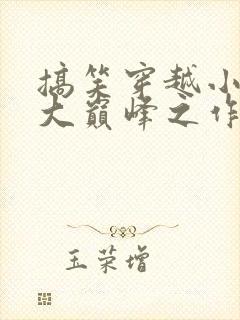 搞笑穿越小
大巅峰之作
玉荣增